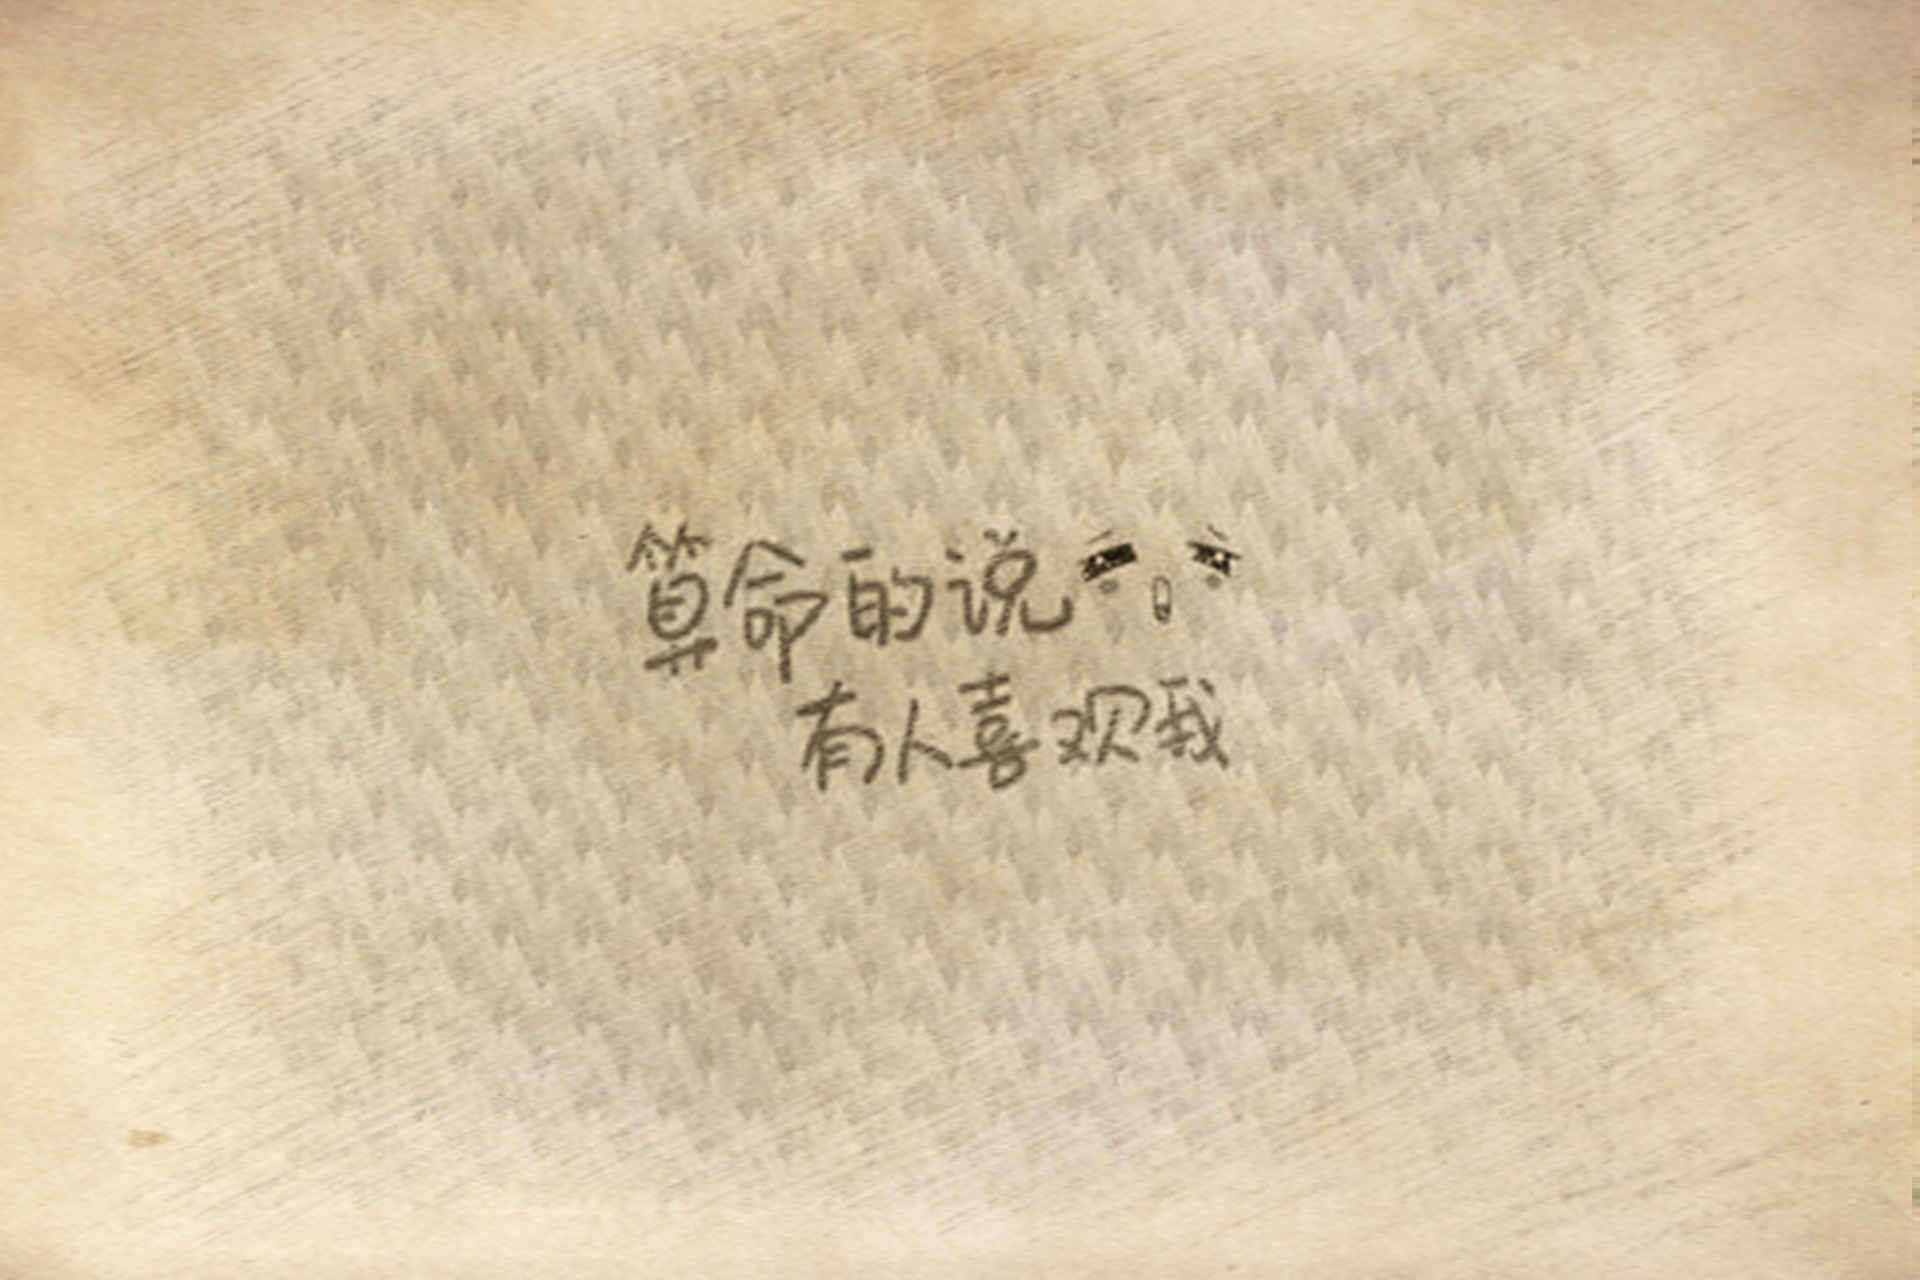 算命的说
有人喜欢我